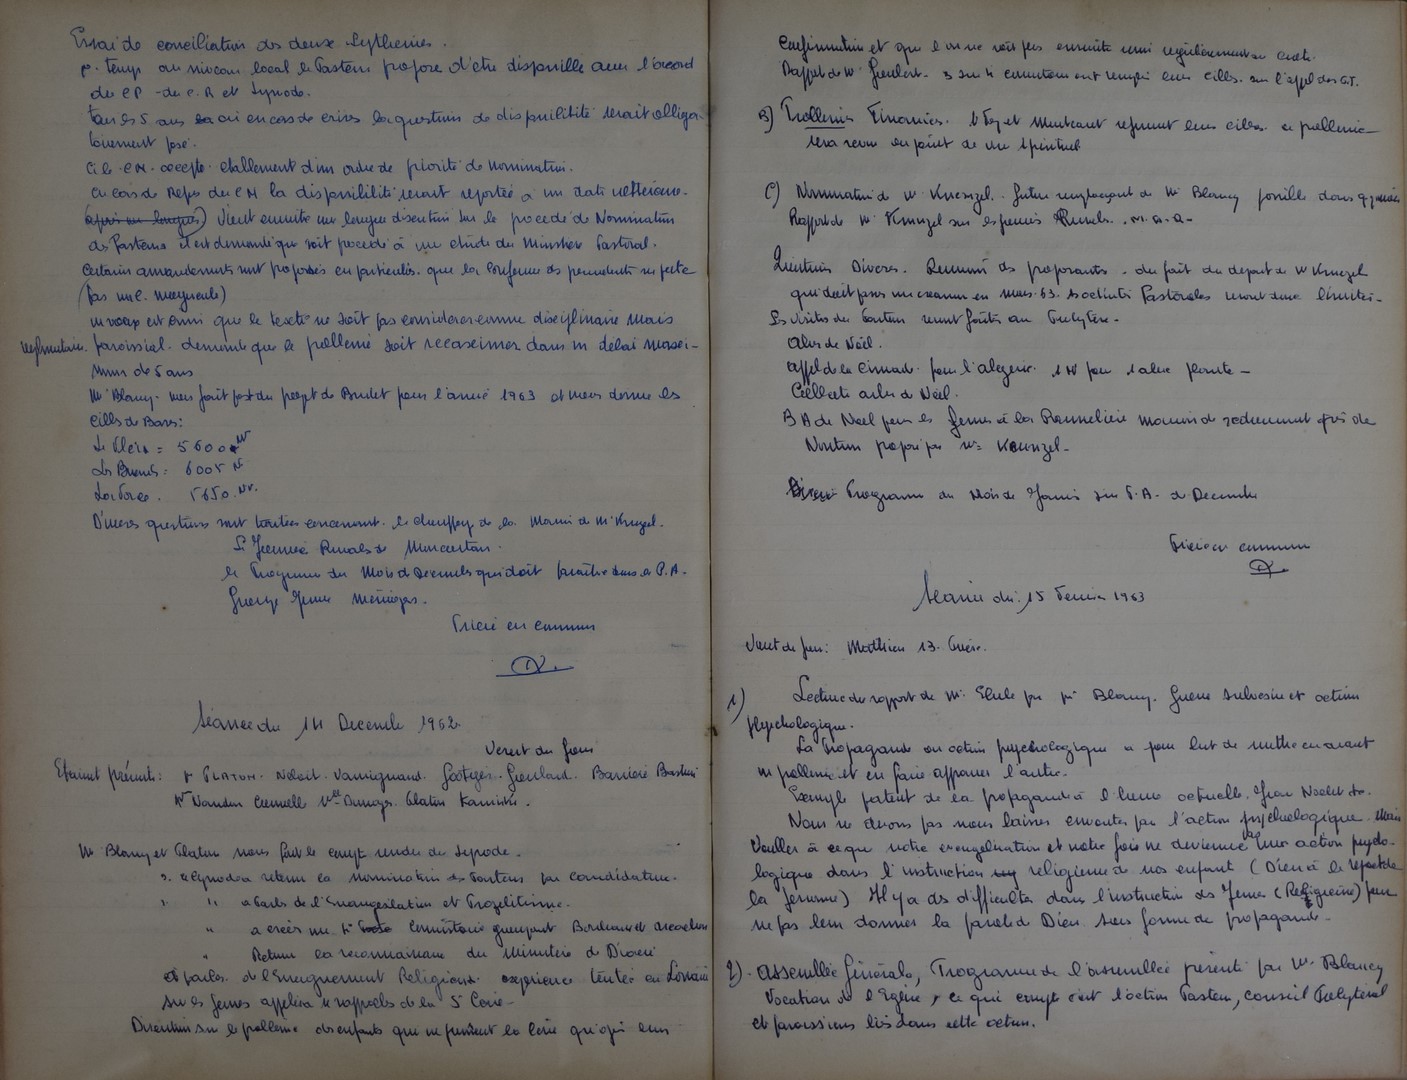 Essai de conciliation des deux systhemes.
p. temps au niveau local le Pasteur propose d'être disponible avec l'accord
du CP - du C.R et Synode.
tous les 5 ans ou en cas de crises la question de disponibilité serait obliga-
toirement posé.
Si le CN. accepte. etablissement d'un ordre de priorité de Nomination.
En cas de Refus du CN la disponibilité serait reportée à une date ulterieure.
Vient ensuite une longue discution sur le procédé de Nomination
des Pasteurs il est demandé que soit procédé à une etude du Ministere Pastoral.
Certains amandements sont proposés en particulier. que la Conference des
(pas majuscule)
un voeux est emis que le texte ne soit pas considerer comme disciplinaire mais
reglementaire. paroissial. demande que le probleme soit reexaminer dans un délai maxi-
mum de 5 ans
Mr Blancy. nous fait part du projet de Budget pour l'année 1963 et nous donne les
cibles de Bases:
Le Fleix = 5600 NF
Les Brunets: 6005 NF
La Force. 5650. NF.
Diverses questions sont traitées concernant. le chauffage de la Maison de Mr Kneuzel.
La Journée Rurale de Moncaretan.
le Programme du Mois de Decembre qui doit paraître dans le P.A.
Groupe Jeunes Ménages.
Prière en commun
Séance du 14 Decembre 1962.
Verset du Jour
Etaient présents: PLATON. Nolait. Vauvignaud. Goetzges. Goulard. Barriere Bastien
Mr Vandou Crunelle Mlle Dumages. Platon Kaminski.
Mr Blancy et Platon nous font le compte rendu du Synode.
" le Synode a retenu la nomination des Pasteurs par candidature.
" " a parlé de l'Evangelisation et Proselitisme.
" a créés une Commission groupant Bordeaux et Arcachon
" Retenu la reconnaissance du Ministere de Diacre
et parler de l'Enseignement Religieux. experience tentée en Lorraine
sur les Jeunes
Discution sur le probleme des enfants que ne prennent la Cène qu'apr leur
Confirmation et que l'on ne voit pas ensuite venir regulierement au culte.
Rappel de Mr Goulard. 3 sur 4 ont rempli leurs cibles. sur l'appel des
B) Problemes Financiers. le Fleix et Montcaret refusent leurs cibles. ce probleme
sera revu en point de vue spirituel
C) Nomination de Mr Kneuzel. futur remplaçant de Mr Blancy possible dans
Rapport de Mr Kneuzel sur les Rurales. M.A.R-
Questions Diverses. Reunions des proposants. du fait du depart de Mr Kneuzel
qui doit passer un examen en Mars 63. ses activités Pastorales seront donc limitées-
Les visites du Pasteur seront faites au Presbytère-
Arbre de Noël.
Appel de la Cimade. pour l'Algerie. 1 NF pour 1 arbre planté-
Collecte arbre de Noël.
BA de Noël pour les Jeunes à la Rannelière maison de redressement près de
Nontron proposé par Mr Kneuzel-
Programme du Mois de Janvier sur P.A. de Decembre
Prière en commun
Séance du: 15 Fevrier 1963
Verset du Jour: Matthieu 13. Prière.
1) Lecture du rapport de Mr. Ellule par Mr Blancy. Guerre subversive et action
Psychologique.
La Propagande ou action psychologique a pour but de mettre en avant
un probleme et en faire apparaitre l'autre.
Exemple patent de la propagande à l'heure actuelle. Jean Nocher etc.
Nous ne devons pas nous laisser envouter par l'action psychologique. Mais
Veuller à ce que notre evangelisation et notre foi ne devienne une action psycho-
logique dans l'instruction religieuse de nos enfants (Dieu à le respect de
la personne) Il y a des difficultés dans l'instruction des Jeunes (Religieuse) pour
ne pas leur donner la parole de Dieu sous forme de propagande-
2). Assemblée Générale, Programme de l'assemblée présenté par Mr Blancy
Vocation de l'Eglise, ce qui compte c'est l'action Pasteur, conseil Presbyteral
et paroissiens liés dans cette action.